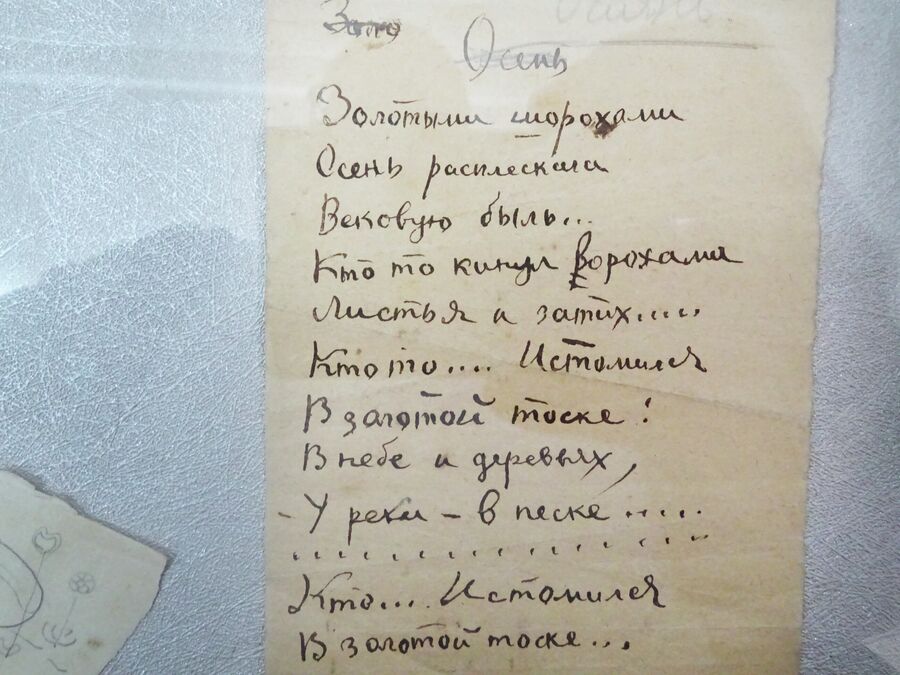 Осень
Золотыми шорохами
Осень расплескала
Вековую быль...
Кто то кинул ворохами
Листья и затих....
Кто то.... Истомился
В золотой тоске!
В небе и деревьях,
- У реки - в песке .....
. . . . . . . . . . . . . . . .
Кто... Истомился
В золотой тоске...